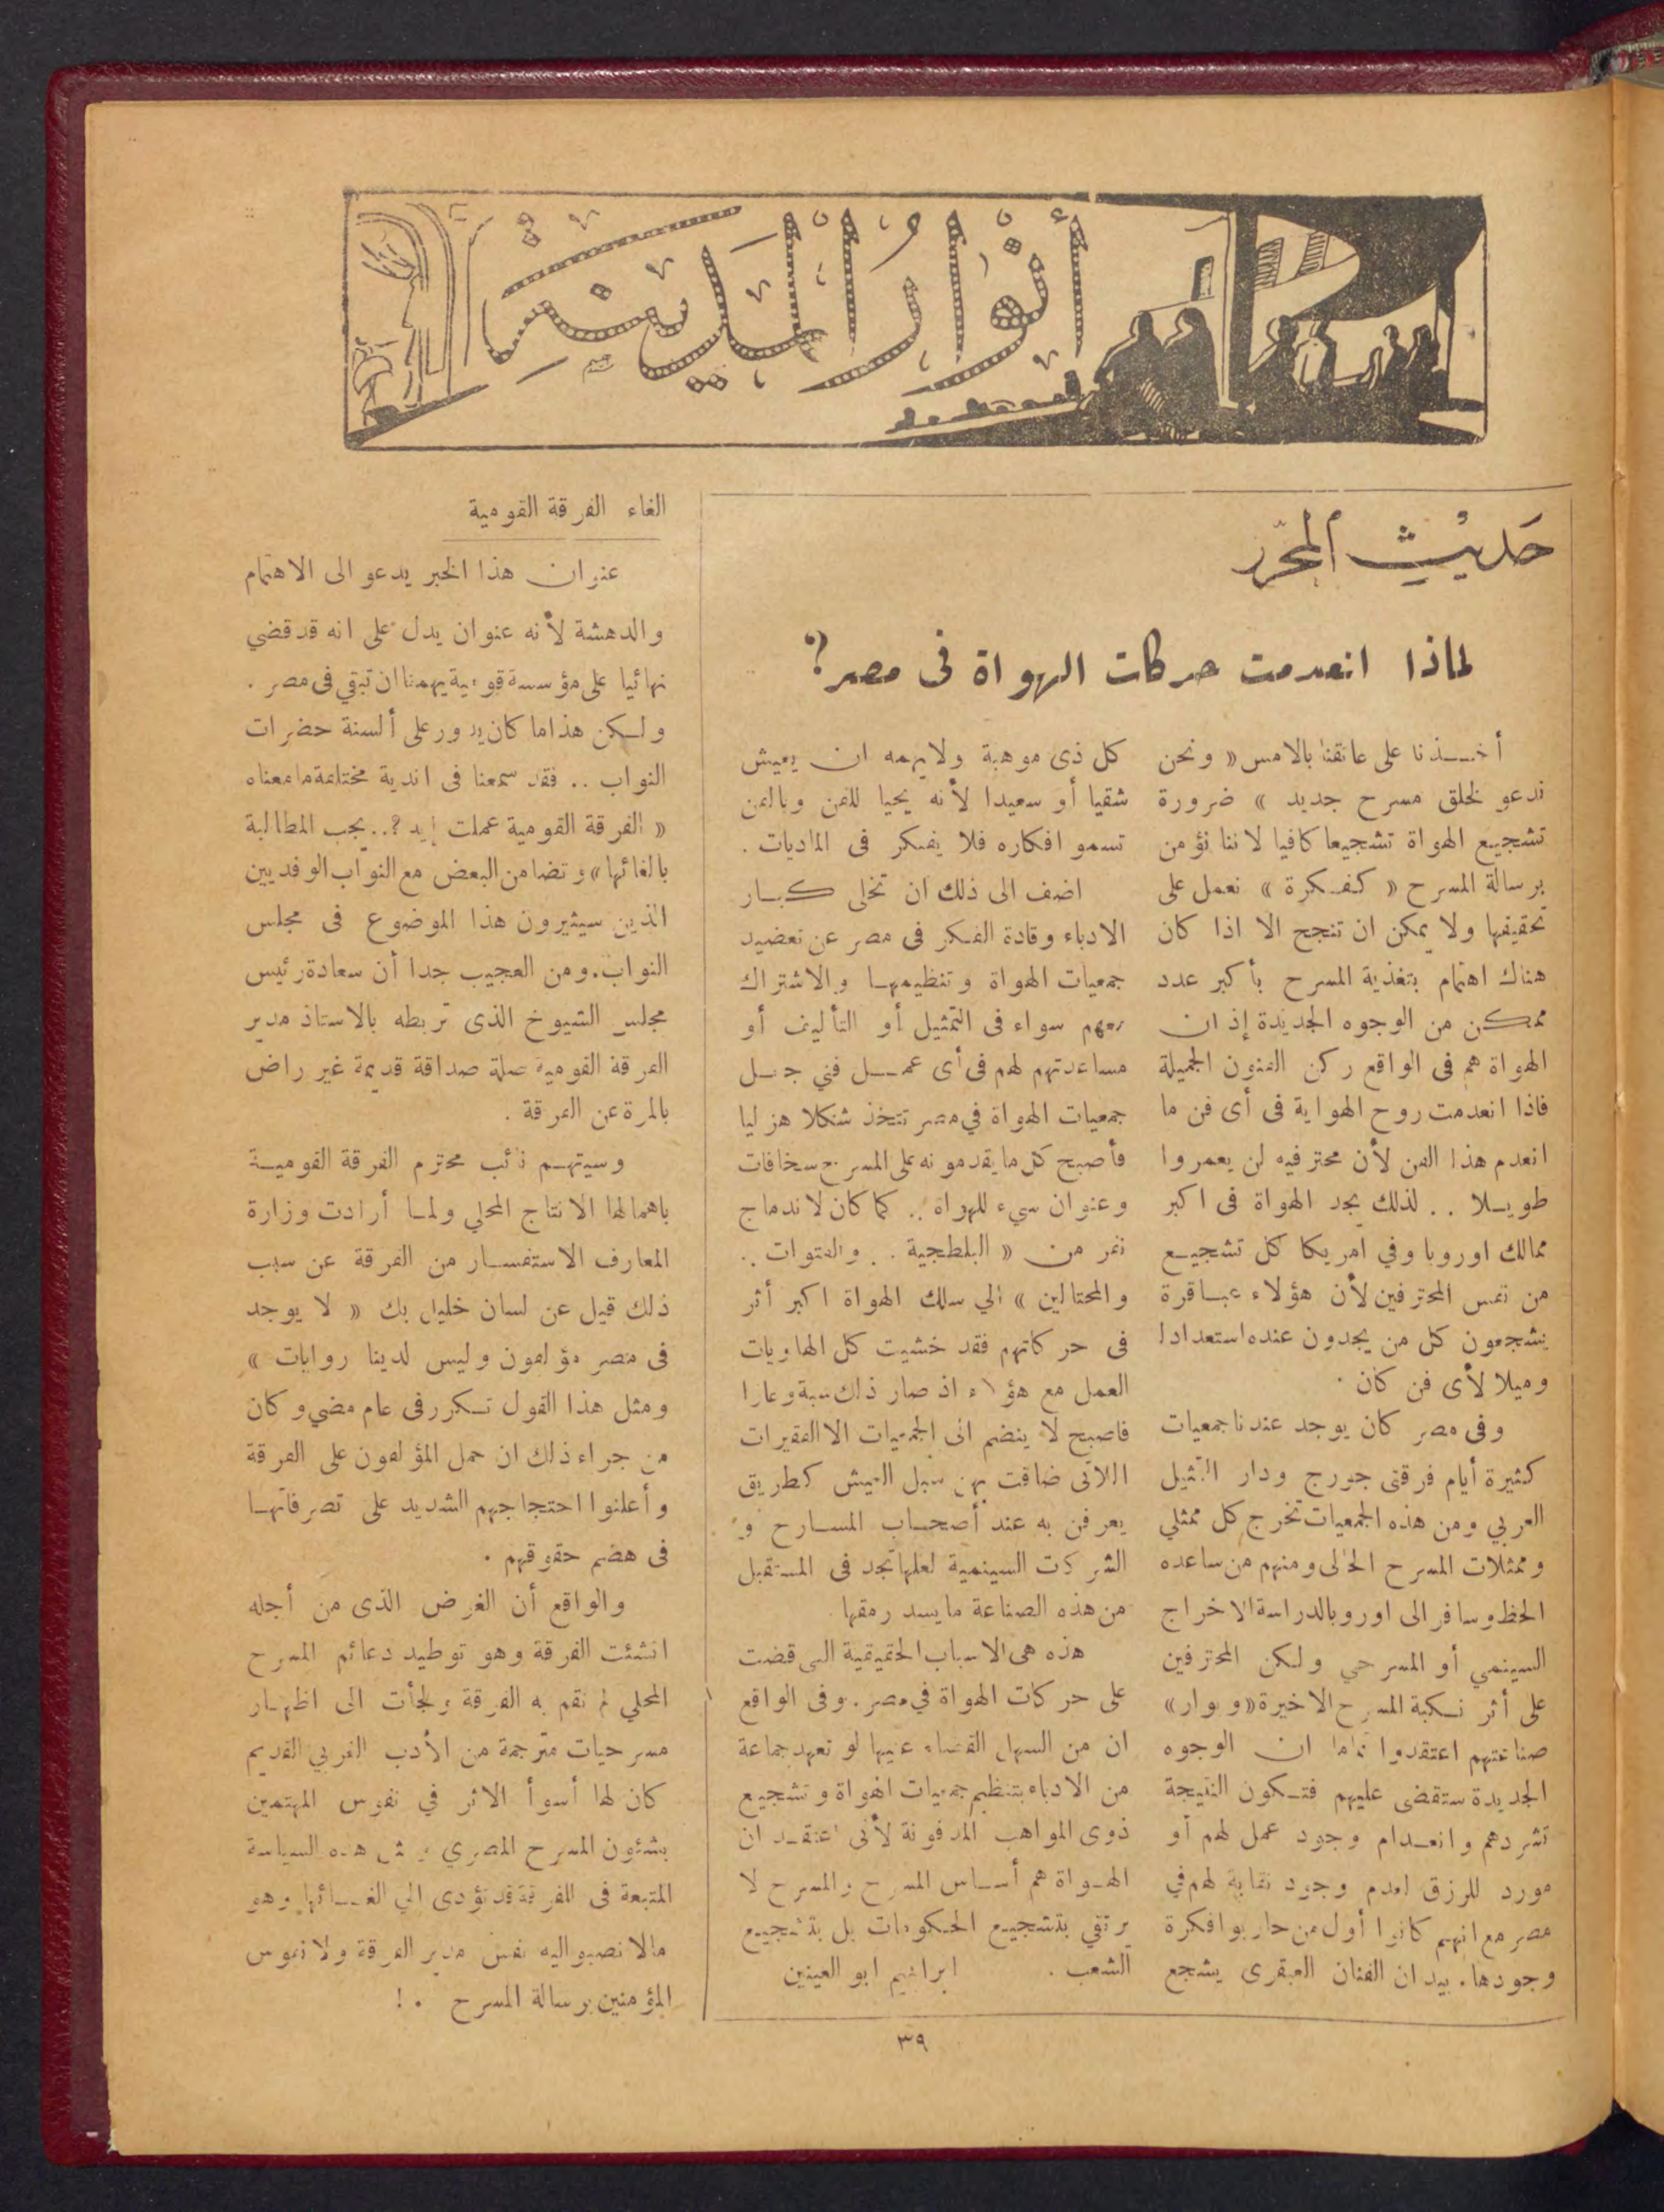 أنوار المدينة
حديث المحرر
لماذا انعدمت حركات الهواة فى مصر؟
أخـــذنا على عاتقنا بالامس « ونحن
ندعو لخلق مسرح جديد » ضرورة
تشجيع الهواة تشجيعا كافيا لاننا نؤمن
برسالة المسرح « كفـكرة » نعمل على
تحقيقها ولا يمكن ان تنجح الا اذا كان
هناك اهتمام بتغذية المسرح بأكبر عدد
ممـكن من الوجوه الجديدة إذ ان
الهواة هم فى الواقع ركن الفنون الجميلة
فاذا انعدمت روح الهواية فى أى فن ما
انعدم هذا الفن لأن محترفيه لن يعمروا
طويـلا . . لذلك يجد الهواة فى اكبر
ممالك اوروبا وفي امريكا كل تشجيـع
من نفس المحترفين لأن هؤلاء عبـاقرة
يشجعون كل من يجدون عنده استعدادا
وميلا لأى فن كان .
وفى مصر كان يوجد عندنا جمعيات
كثيرة أيام فرقتى جورج ودار التمثيل
العربي ومن هذه الجمعيات تخرج كل ممثلي
وممثلات المسرح الحالى ومنهم من ساعده
الحظ وسافر الى اوروبا لدراسة الاخراج
السينمي أو المسرحي ولكن المحترفين
على أثر نـكبة المسرح الاخيرة « وبوار »
صناعتهم اعتقدوا تماما ان الوجوه
الجديدة ستقضى عليهم فتـكون النتيجة
تشردهم وانعـدام وجود عمل لهم أو
مورد للرزق لعدم وجود نقابة لهم في
مصر مع انهم كانوا أول من حاربوا فكرة
وجودها . بيد ان الفنان العبقرى يشجع
كل ذى موهبة ولا يهمه ان يعيش
شقيا أو سعيدا لأنه يحيا للفن وبالفن
تسمو افكاره فلا يفـكر فى الماديات .
اضف الى ذلك ان تخلى كبـار
الادباء وقادة الفكر فى مصر عن تعضيد
جمعيات الهواة وتنظيمهـا والاشتراك
معهم سواء فى التمثيل أو التأليف أو
مساعدتهم لهم فى أى عمـــل فني جعـل
جمعيات الهواة في مصر تتخذ شكلا هزليا
فأصبح كل ما يقدمونه على المسرح سخافات
وعنوان سيء للهواة . . كما كان لاندماج
نفر من « البلطجية . . والفتوات . .
والمحتالين » الي سلك الهواة اكبر أثر
فى حركاتهم فقد خشيت كل الهاويات
العمل مع هؤلاء اذ صار ذلك سبة وعارا
فاصبح لا ينضم الى الجمعيات الا الفقيرات
اللاتى ضاقت بهن سبل العيش كطريق
يعرفن به عند أصحـاب المسـارح و
الشركات السينمية لعلها تجد فى المستقبل
من هذه الصناعة ما يسد رمقها .
هذه هى الاسباب الحقيقية التى قضت
على حركات الهواة في مصر . وفى الواقع
ان من السهل القضاء عليها لو تعهد جماعة
من الادباء بتنظيم جمعيات الهواة وتشجيع
ذوى المواهب المدفونة لأنى اعتقـد ان
الهـواة هم أسـاس المسرح والمسرح لا
يرتقي بتشجيـع الحكومات بل بتشجيـع
الشعب . ابراهيم ابو العينين
الغاء الفرقة القومية
عنوان هذا الخبر يدعو الى الاهتمام
والدهشة لأنه عنوان يدل على انه قد قضي
نهائيا على مؤسسة قومية يهمنا ان تبقي فى مصر .
ولـكن هذا ما كان يدور على ألسنة حضرات
النواب .. فقد سمعنا فى اندية مختلفة ما معناه
« الفرقة القومية عملت إيه ؟.. يجب المطالبة
بالغائها » وتضامن البعض مع النواب الوفديين
الذين سيثيرون هذا الموضوع فى مجلس
النواب . ومن العجيب جدا أن سعادة رئيس
مجلس الشيوخ الذى تربطه بالاستاذ مدير
الفرقة القومية صلة صداقة قديمة غير راض
بالمرة عن الفرقة .
وسيتهـم نائب محترم الفرقة القوميـة
باهمالها الانتاج المحلي ولمـا أرادت وزارة
المعارف الاستفسـار من الفرقة عن سبب
ذلك قيل عن لسان خليل بك « لا يوجد
فى مصر مؤلفون وليس لدينا روايات »
ومثل هذا القول تـكرر فى عام مضي وكان
من جراء ذلك ان حمل المؤلفون على الفرقة
وأعلنوا احتجاجهم الشديد على تصرفاتهـا
فى هضم حقوقهم .
والواقع أن الغرض الذى من أجله
انشئت الفرقة وهو توطيد دعائم المسرح
المحلي لم تقم به الفرقة ولجأت الى اظهـار
مسرحيات مترجمة من الأدب الغربي القديم
كان لها أسوأ الاثر في نفوس المهتمين
بشئون المسرح المصري ومثل هذه السياسة
المتبعة فى الفرقة قد تؤدى الي الغـــائها وهو
مالا نصبو اليه نفس مدير الفرقة ولا نفوس
المؤمنين برسالة المسرح . !
٣٩